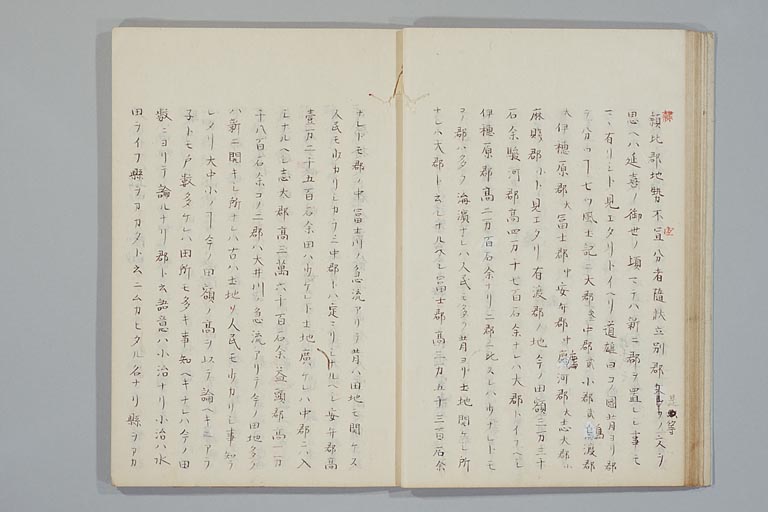 頴比郡地勢不宜分者隨秋立別郡是等ノ文ヲ
思ヘハ延喜ノ御世ノ頃マテハ新ニ郡ヲ置レシ事モ
マヽ有リシト見エタリトイヘリ道雄曰コノ國昔ヨリ郡
ヲ分ツ七ツ風土記ニ大郡中郡小郡烏渡郡
大伊穂原郡大冨士郡安弁郡廬河郡大志太郡
麻賤郡小ト見エタリ有渡郡ノ地今ノ田額二万三十
石余駿河郡高四万十七百石余ナレハ大郡トイフヘシ
伊穂原郡高二万百石余ナリニ郡ニ比スレハ少ナレトモ
コノ郡ハ多ク海濱ナレハ人民モ多ク昔ヨリ土地開ケシ所
ナレハ大郡ト云シナルヘシ冨士郡高二万五千三百石余
ナレトモ郡ノ中冨士川ノ急流アリテ昔ハ田地モ開ケス
人民モ少カリシカラニ中郡トハ定ラレシナルヘシ安弁郡高
壹万二千五百石余田ハ少ケレト土地廣ケレハ中郡ニハ入
シナルヘシ志太郡高三萬六十百石余益頭郡高二万
千八百石余コノ二郡ハ大井川ノ急流アリテ今ノ田地多ク
ハ新ニ開キシ所ナレハ古ハ土地サ人民モ少カリシ事知ラ
レタリ大中小ノ今ノ田額ノ高ヲ以テ論ヘキニアラ
子トモ戸數多ケレハ田所モ多キ事知ヘキナレハ今ノ田
數ニヨリテ論ルナリ郡ト云語意ハ小治ナリ小治ハ水
田ヲイフ縣ヲアカタト云ニムカヒタル名ナリ縣ヲアカ